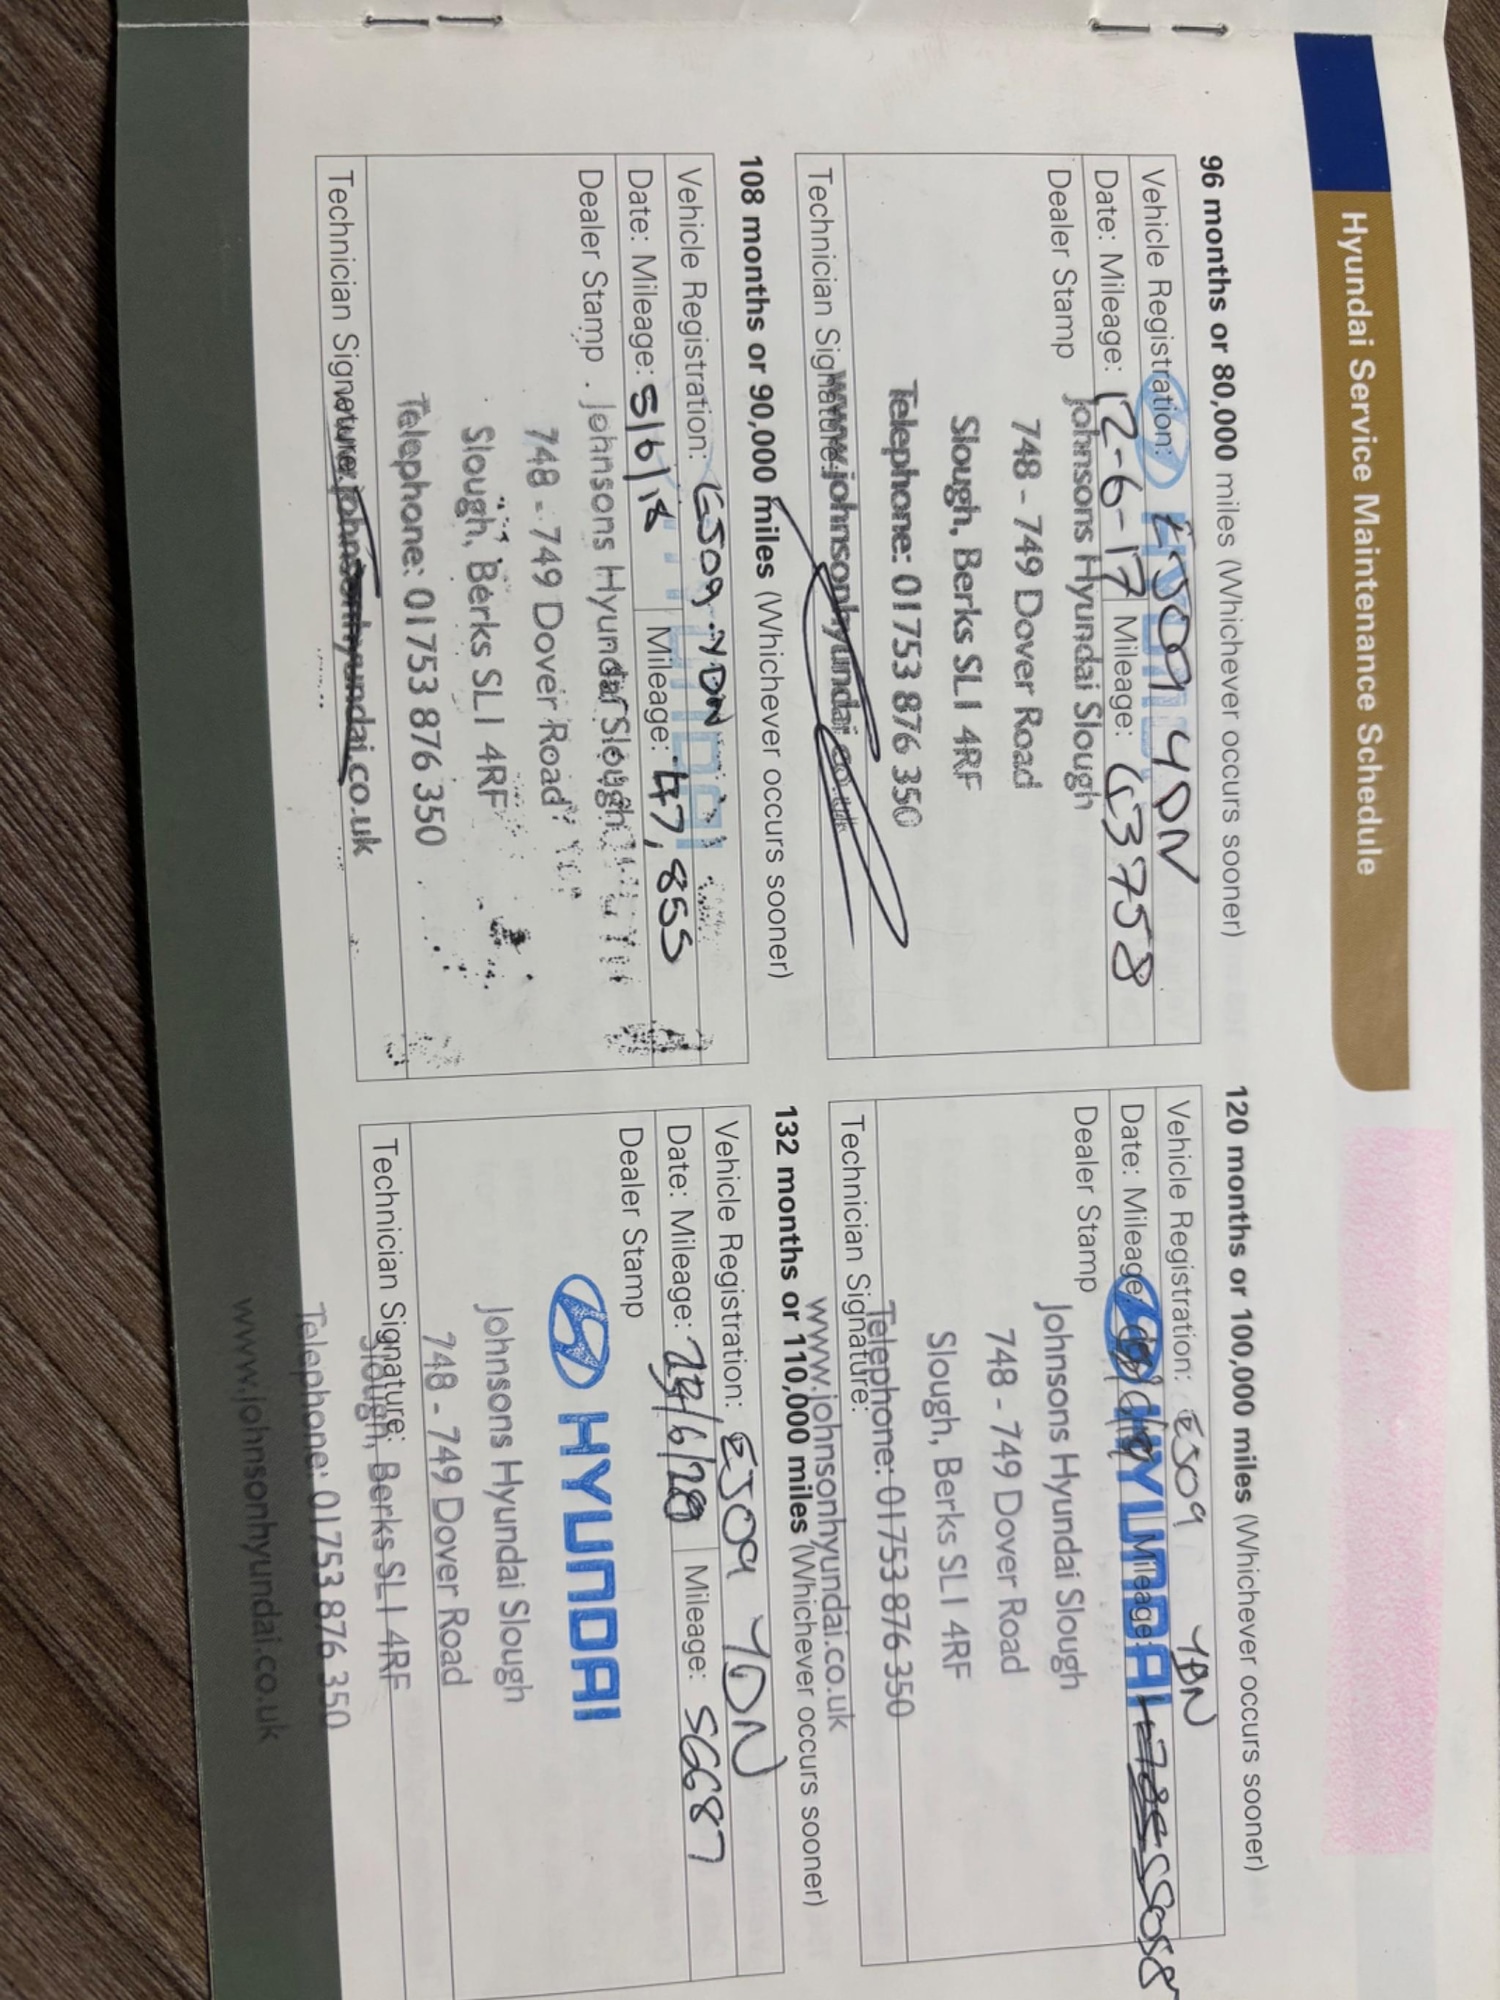 Hyundai Service Maintenance Schedule
96 months or 80,000 miles (Whichever occurs sooner)
Vehicle Registration: EJ09 YDN
Date: Mileage: 12-6-17 Mileage: 43758
Dealer Stamp
Johnsons Hyundai Slough
748 - 749 Dover Road
Slough, Berks SL1 4RF
Telephone: 01753 876 350
www.johnsonhyundai.co.uk
Technician Signature:
108 months or 90,000 miles (Whichever occurs sooner)
Vehicle Registration: EJ09 YDN
HYUNDAI
Date: Mileage: 5/6/18 Mileage: 47,855
Dealer Stamp
Johnsons Hyundai Slough
748 - 749 Dover Road
Slough, Berks SL1 4RF
Telephone: 01753 876 350
Technician Signature:
johnsonhyundai.co.uk
120 months or 100,000 miles (Whichever occurs sooner)
Vehicle Registration: EJ09 YDN
Date: Mileage: Mileage:
HYUNDAI
Dealer Stamp
Johnsons Hyundai Slough
748 - 749 Dover Road
Slough, Berks SL1 4RF
Telephone: 01753 876 350
Technician Signature:
www.johnsonhyundai.co.uk
132 months or 110,000 miles (Whichever occurs sooner)
Vehicle Registration: EJ09 YDN
Date: Mileage: Mileage: 56687
Dealer Stamp
HYUNDAI
Johnsons Hyundai Slough
748 - 749 Dover Road
Slough, Berks SL1 4RF
Technician Signature:
Telephone: 01753 876 350
www.johnsonhyundai.co.uk